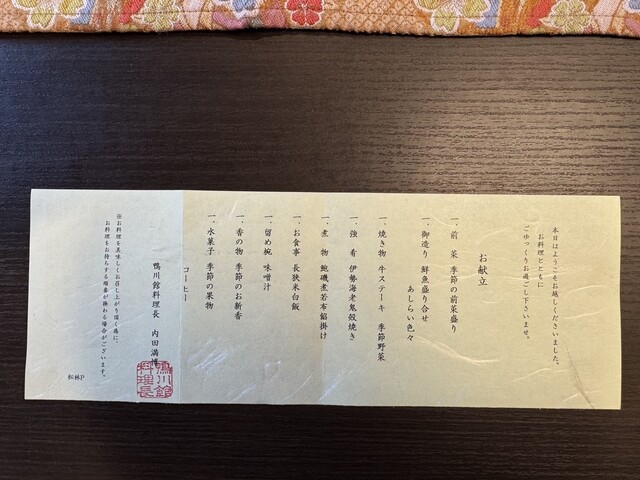 本日はようこそお越しくださいました。
お料理とともに
ごゆっくりお過ごし下さいませ。
お献立
一、前 菜 季節の前菜盛り
一、御造り 鮮魚盛り合せ
あしらい色々
一、焼き物 牛ステーキ 季節野菜
一、強 肴 伊勢海老鬼殻焼き
一、煮 物 鮑磯煮若布餡掛け
一、お食事 長狭米白飯
一、留め椀 味噌汁
一、香の物 季節のお新香
一、水菓子 季節の果物
コーヒー
鴨川館料理長 内田満博
鴨川館
料理長
※お料理を美味しくお召し上がり頂く為に、
お料理をお持ちする順番が換わる場合がございます。
松林P